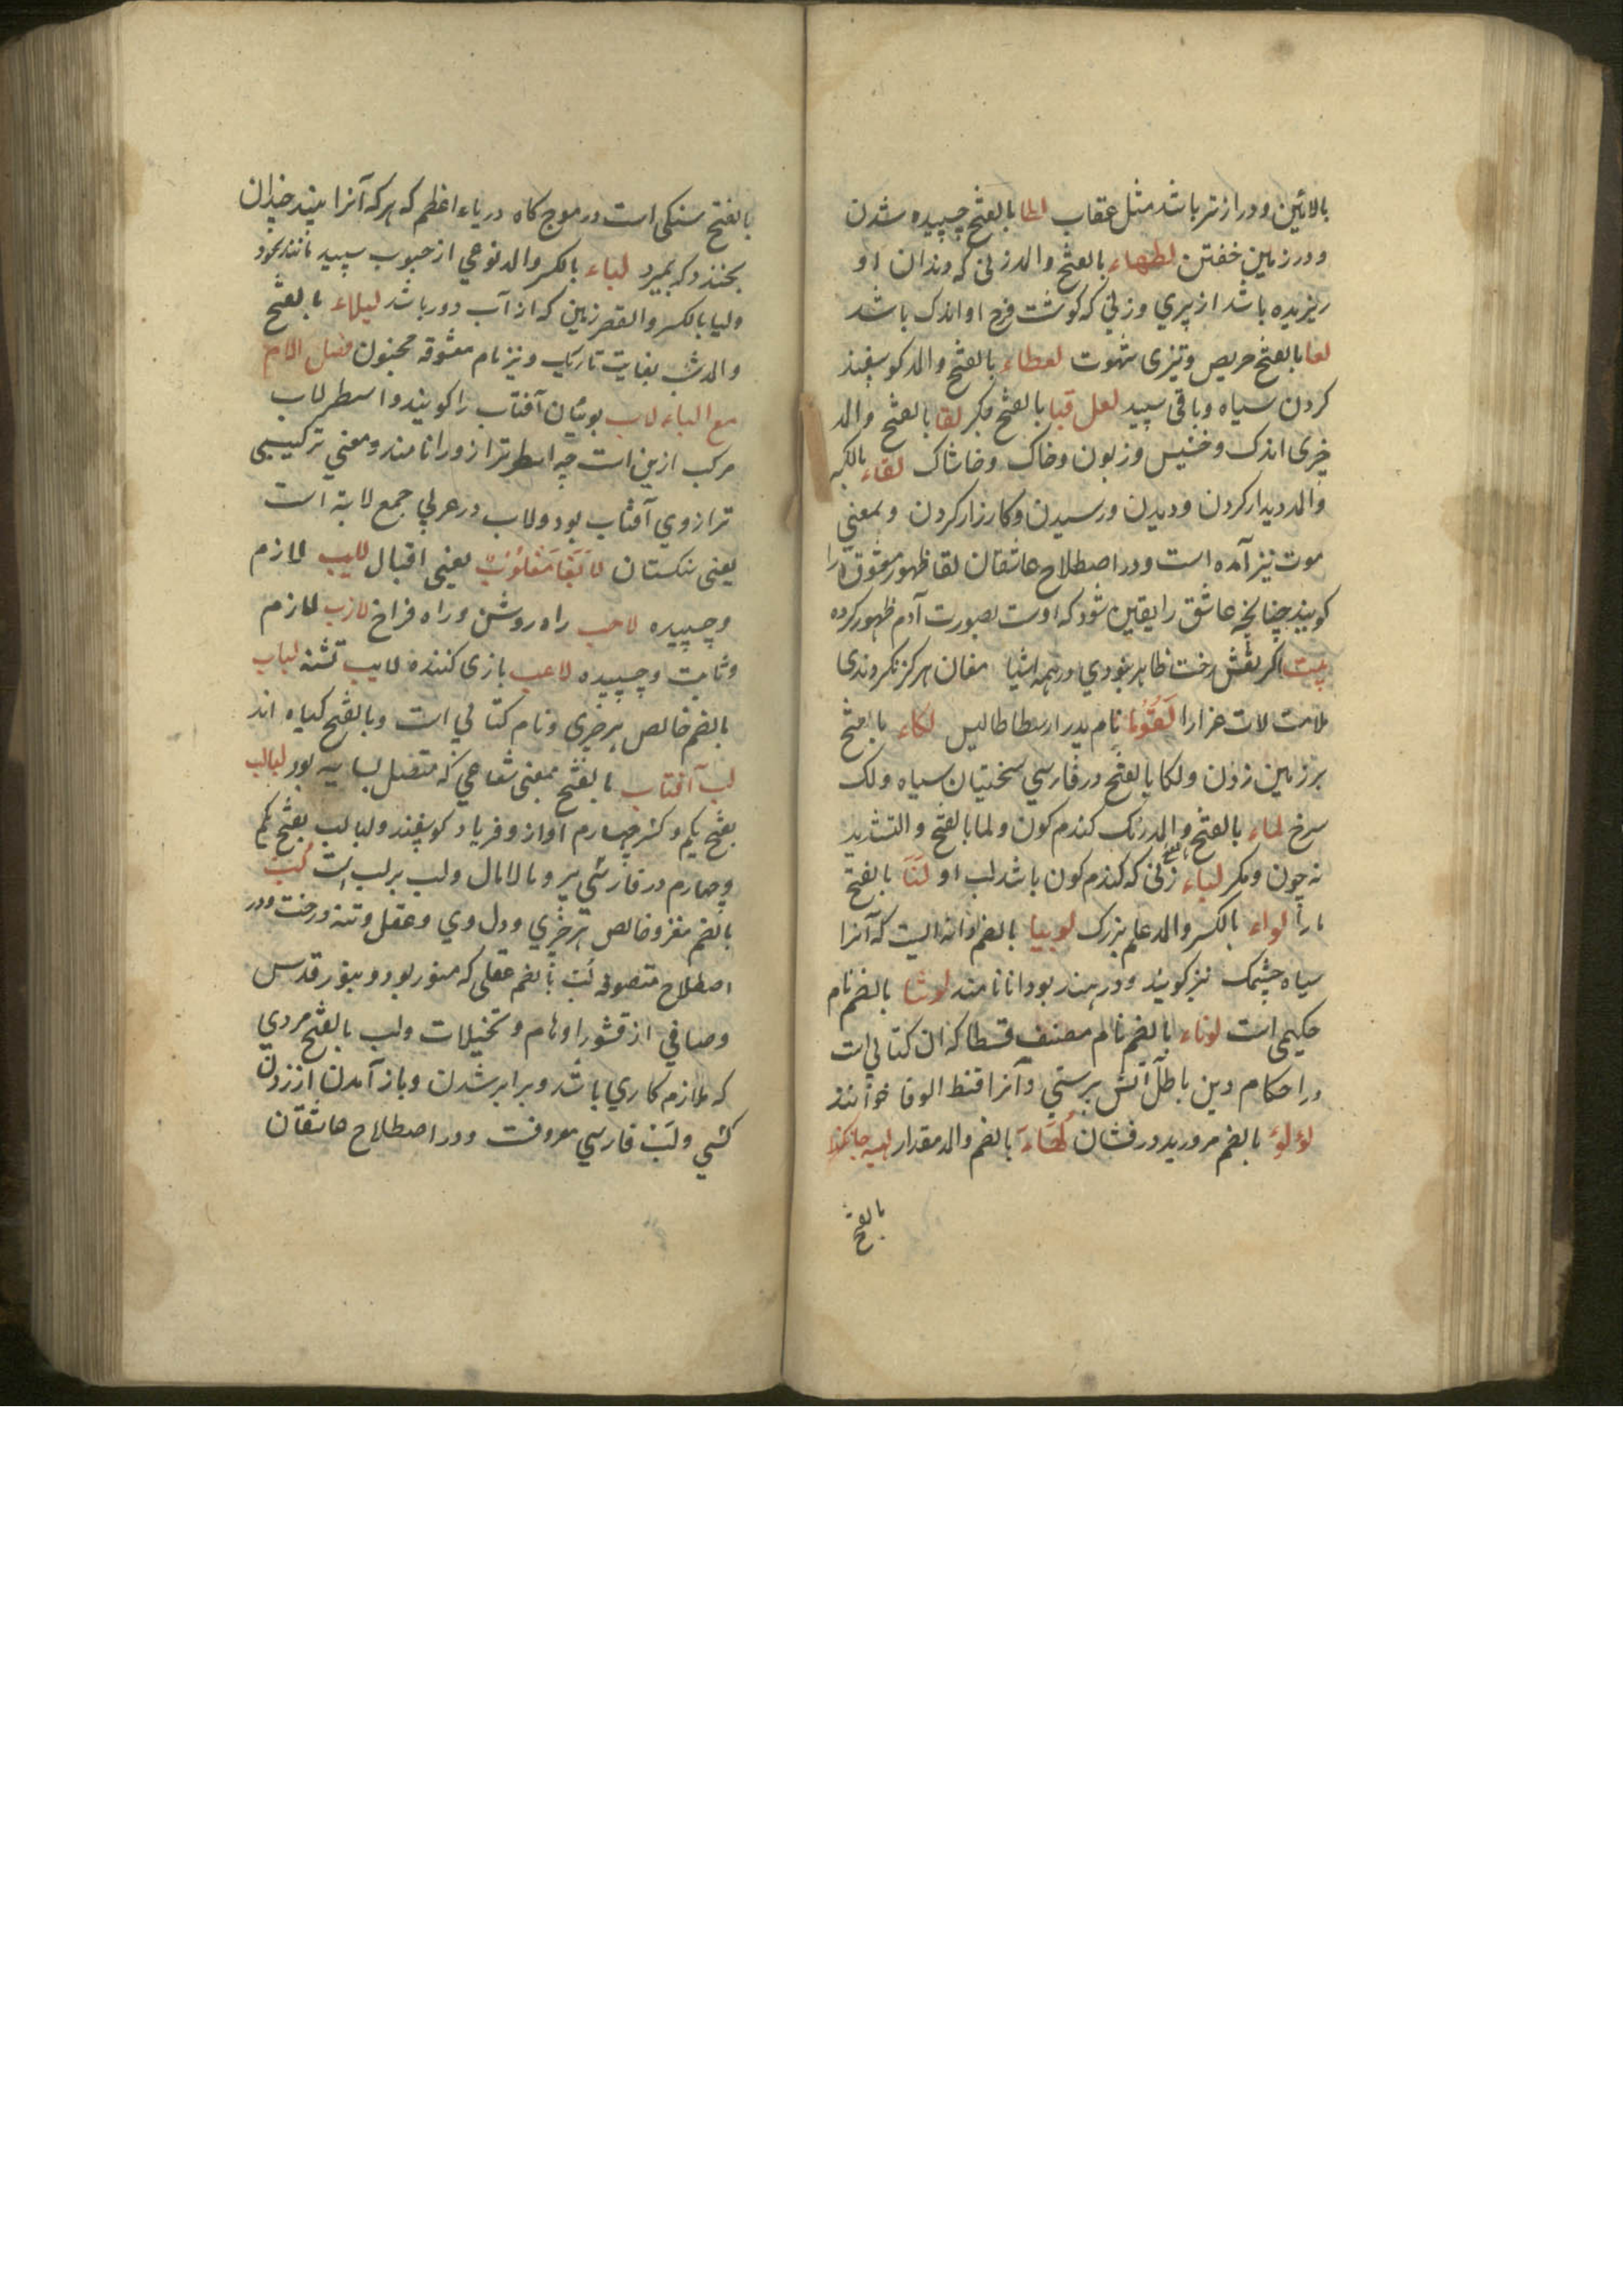 بالائین ودرازتر باشد مثل عقاب لطا بالفتح چسپیده شدن
ودر زمین خفتن لطهاء بالفتح والمد زنی که دندان او
ریزیده باشد از پیری وزنی که کوشت فرج او اندک باشد
لعا بالفتح حریص وتیزی شهوت لعطاء بالفتح والمد کوسپند
کردن سیاه وباقی سپید لعل قبا بالفتح لقا بالفتح والمد
چیزی اندک وخسیس وزبون وخاک وخاشاک لقاء بالکسر
والمد دیدار کردن ودیدن ورسیدن وکارزار کردن وبمعنی
موت نیز آمده است ودر اصطلاح عاشقان لقا ظهور معشوق را
کویند چنانچه عاشق را یقین شود که اوست بصورت آدم ظهور کرده
بیت اکر نقش رخت ظاهر نبودی در همه اشیا مغان هرکز نکردندی
ملامت لات عزارا لقوما نام پدر ارسطاطالیس لکاء بالفتح
بر زمین زدن ولکا بالفتح در فارسی سختیان سیاه ولک
سرخ لماء بالفتح والمد رنک کندم کون ولما بالفتح والتشدید
نه چون ومکر لمیاء بالفتح زنی که کندم کون باشد لب او لنا بالفتح
مارا لواء بالکسر والمد علم بزرک لوبیا بالضم دانه ایست که آنرا
سیاه چشمک نیز کویند ودر هند بودانا نامند لوشا بالضم نام
حکیمی است لوناء بالضم نام مصنف قسطا که آن کتابی است
در احکام دین باطل آتش پرستی وآنرا قنط الوفا خوانند
لؤلؤ بالضم مروارید درفشان لهاء بالضم والمد مقدار
بالفتح
بالفتح سنکی است در موج کاه دریاء اعظم که هر که آنرا بیند چندان
بخندد که بمیرد لیاء بالکسر والمد نوعی از حبوب سپید مانند نخود
ولیا بالکسر والقصر زمین که از آب دور باشد لیلاء بالفتح
والمد شب بغایت تاریک ونیز نام معشوقه مجنون فصل اللام
مع الباء لاب یونان آفتاب را کویند واسطرلاب
مرکب ازین است چه اسطر ترازو را نامند ومعنی ترکیبی
ترازوی آفتاب بود ولاب در عربی جمع لابة است
یعنی سنکستان لابقا مقلوب یعنی اقبال لایب لازم
وچسپیده لاحب راه روشن وراه فراخ لازب لازم
وثابت وچسپیده لاعب بازی کننده لایب تشنه لباب
بالضم خالص هر چیزی ونام کتابی است وبالفتح کیاه اند
لب آفتاب بالفتح بمعنی شعاعی که متصل بسایه بود لبالب
بفتح یکم وکسر چهارم آواز وفریاد کوسپند ولبالب بفتح یکم
وچهارم در فارسی پر ومالامال ولب بر لب است لب
بالضم مغز وخالص هر چیزی ودل وی وعقل وتنه درخت ودر
اصطلاح متصوفه لب بالضم عقلی که منور بود وبنور قدس
وصافی از قشور اوهام وتخیلات ولب بالفتح مردی
که ملازم کاری باشد وبرابر شدن وباز آمدن از زدن
کسی ولب فارسی معروفست ودر اصطلاح عاشقان